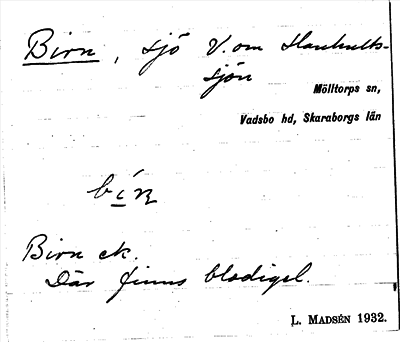 Birn, sjö V. om Hankults-
sjön
Mölltorps sn,
Vadsbo hd, Skaraborgs län
Birn ek.
Där finns blodigel.
L. MADSÉN 1932.